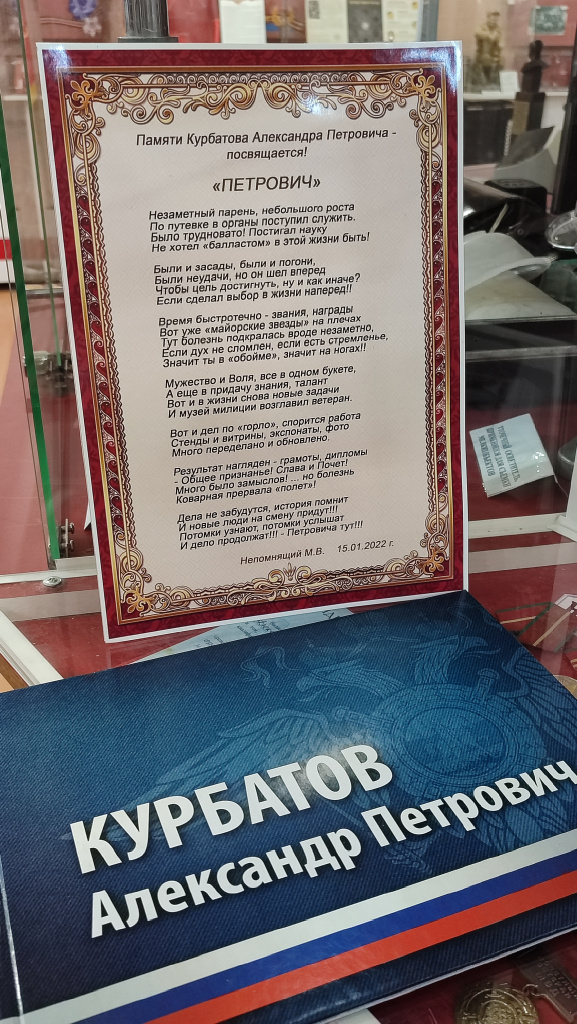 Памяти Курбатова Александра Петровича -
посвящается!
«ПЕТРОВИЧ»
Незаметный парень, небольшого роста
По путевке в органы поступил служить.
Было трудновато! Постигал науку
Не хотел «балластом» в этой жизни быть!
Были и засады, были и погони,
Были неудачи, но он шел вперед
Чтобы цель достигнуть, ну и как иначе?
Если сделал выбор в жизни наперед!!
Время быстротечно - звания, награды
Вот уже «майорские звезды» на плечах
Тут болезнь подкралась вроде незаметно,
Если дух не сломлен, если есть стремленье,
Значит ты в «обойме», значит на ногах!!
Мужество и Воля, все в одном букете,
А еще в придачу знания, талант
Вот и в жизни снова новые задачи
И музей милиции возглавил ветеран.
Вот и дел по «горло», спорится работа
Стенды и витрины, экспонаты, фото
Много переделано и обновлено.
Результат нагляден - грамоты, дипломы
- Общее признанье! Слава и Почет!
Много было замыслов! ... но болезнь
Коварная прервала «полет»!
Дела не забудутся, история помнит
И новые люди на смену придут!!!
Потомки узнают, потомки услышат
И дело продолжат!!! - Петровича тут!!!
Непомнящий М.В. 15.01.2022 г.
КУРБАТОВ
Александр Петрович